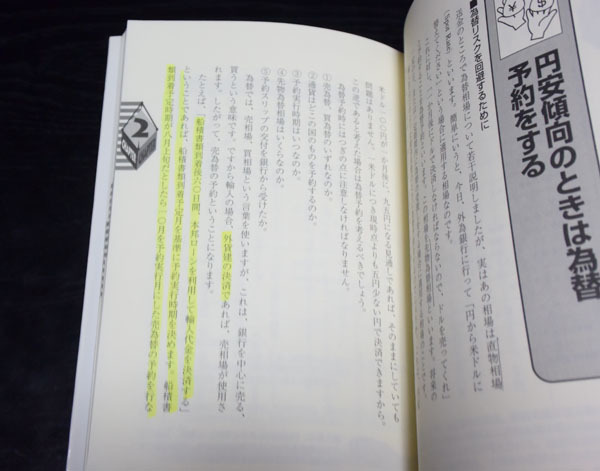 円安傾向のときは為替
予約をする
■為替リスクを回避するために
送金のところで為替相場について若干説明しましたが、実はあの相場は直物相場
といいます。簡単にいうと、今日、外為銀行に行って「円から米ドルに
ください」という場合に適用する相場なのです。
米ドル一〇〇円が一か月後に、九五円になる見通しであれば、そのままにしていても
問題はありません。一米ドルにつき現時点よりも五円少ない円で決済できますから。
この逆であると考えた場合は為替予約を考えるべきでしょう。
為替予約時にはつぎの点に注意しなければなりません。
①売為替、買為替のいずれなのか。
②通貨はどこの国のものを予約するのか。
③予約実行時期はいつなのか。
④先物為替相場はいくらなのか。
⑤予約スリップの交付を銀行から受けたか。
為替では、売相場、買相場という言葉を使いますが、これは、銀行を中心に売る、
買うという意味です。ですから輸入の場合、外貨建の決済であれば、売相場が使用さ
れます。したがって、売為替の予約ということになります。
たとえば、「船積書類到着後六〇日間、本邦ローンを利用して輸入代金を決済する」
ということであれば、船積書類到着予定月を基準に予約実行時期を決めます。船積書
類到着予定時期が八月上旬だとしたら一〇月を予約実行月にした売為替の予約を行な
2